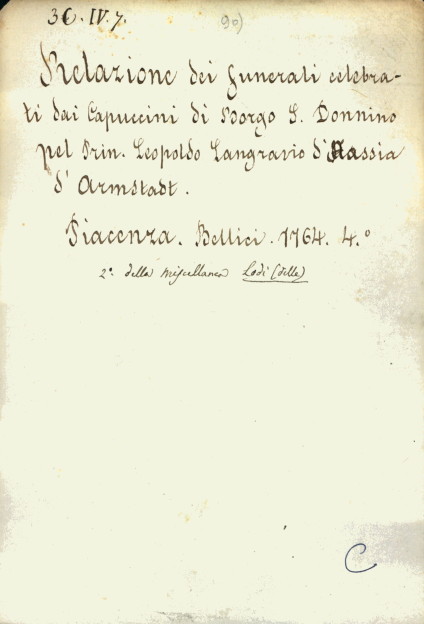 3C. IV. 7.
90)
Relazione dei funerali celebra-
ti dai Capuccini di Borgo S. Donnino
pel Prin. Leopoldo Langravio d'Hassia
d'Armstadt.
Piacenza. Bellici. 1764. 4.°
2ª della miscellanea Lodi (delle)
C